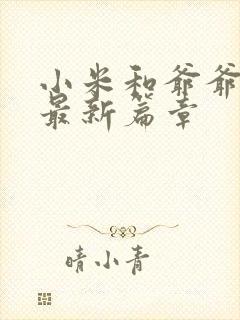 小米和爷爷
最新篇章
晴小青